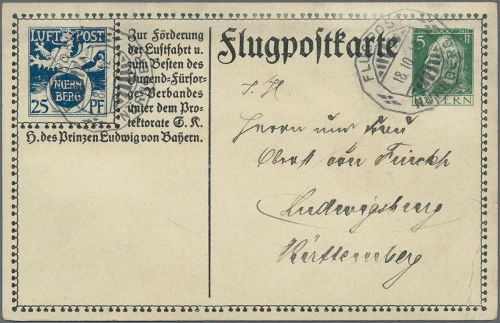 LUFT POST
NÜRN
BERG
25 PF
Zur Förderung
der Luftfahrt u.
zum Besten des
Jugend-Fürsor-
ge-Verbandes
unter dem Pro-
tektorate S. K.
H. des Prinzen Ludwig von Bayern.
Flugpostkarte
5
BAYERN
18.10
S. H.
Herrn und Frau
Oberst von
Ludwigsburg
Württemberg